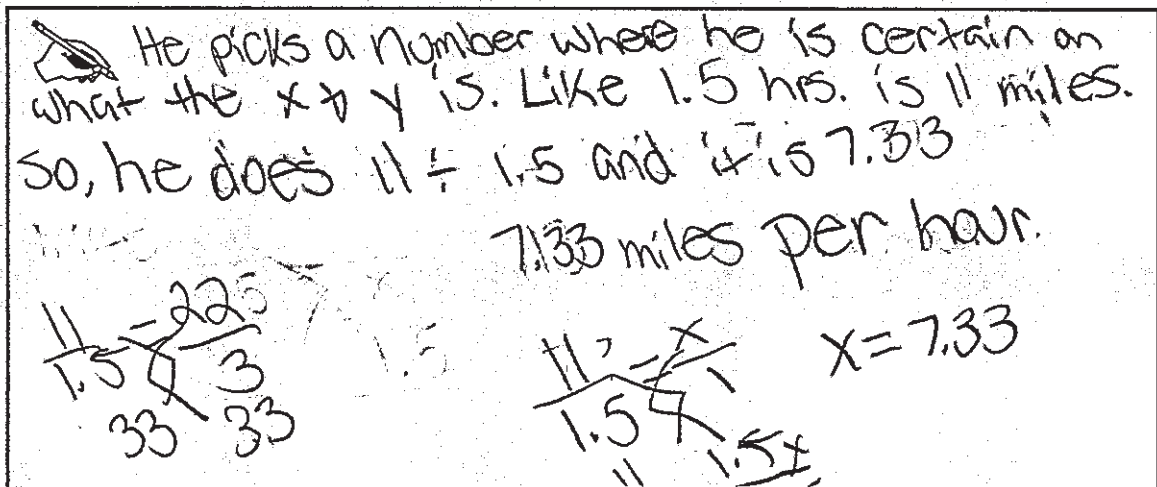 He picks a number where he is certain on
what the x & y is. Like 1.5 hrs. is 11 miles.
So, he does 11 ÷ 1.5 and it is 7.33
7.33 miles per hour.
11/1.5 = 22/3
33 33
11/1.5 = x/1
x = 7.33
11 1.5x